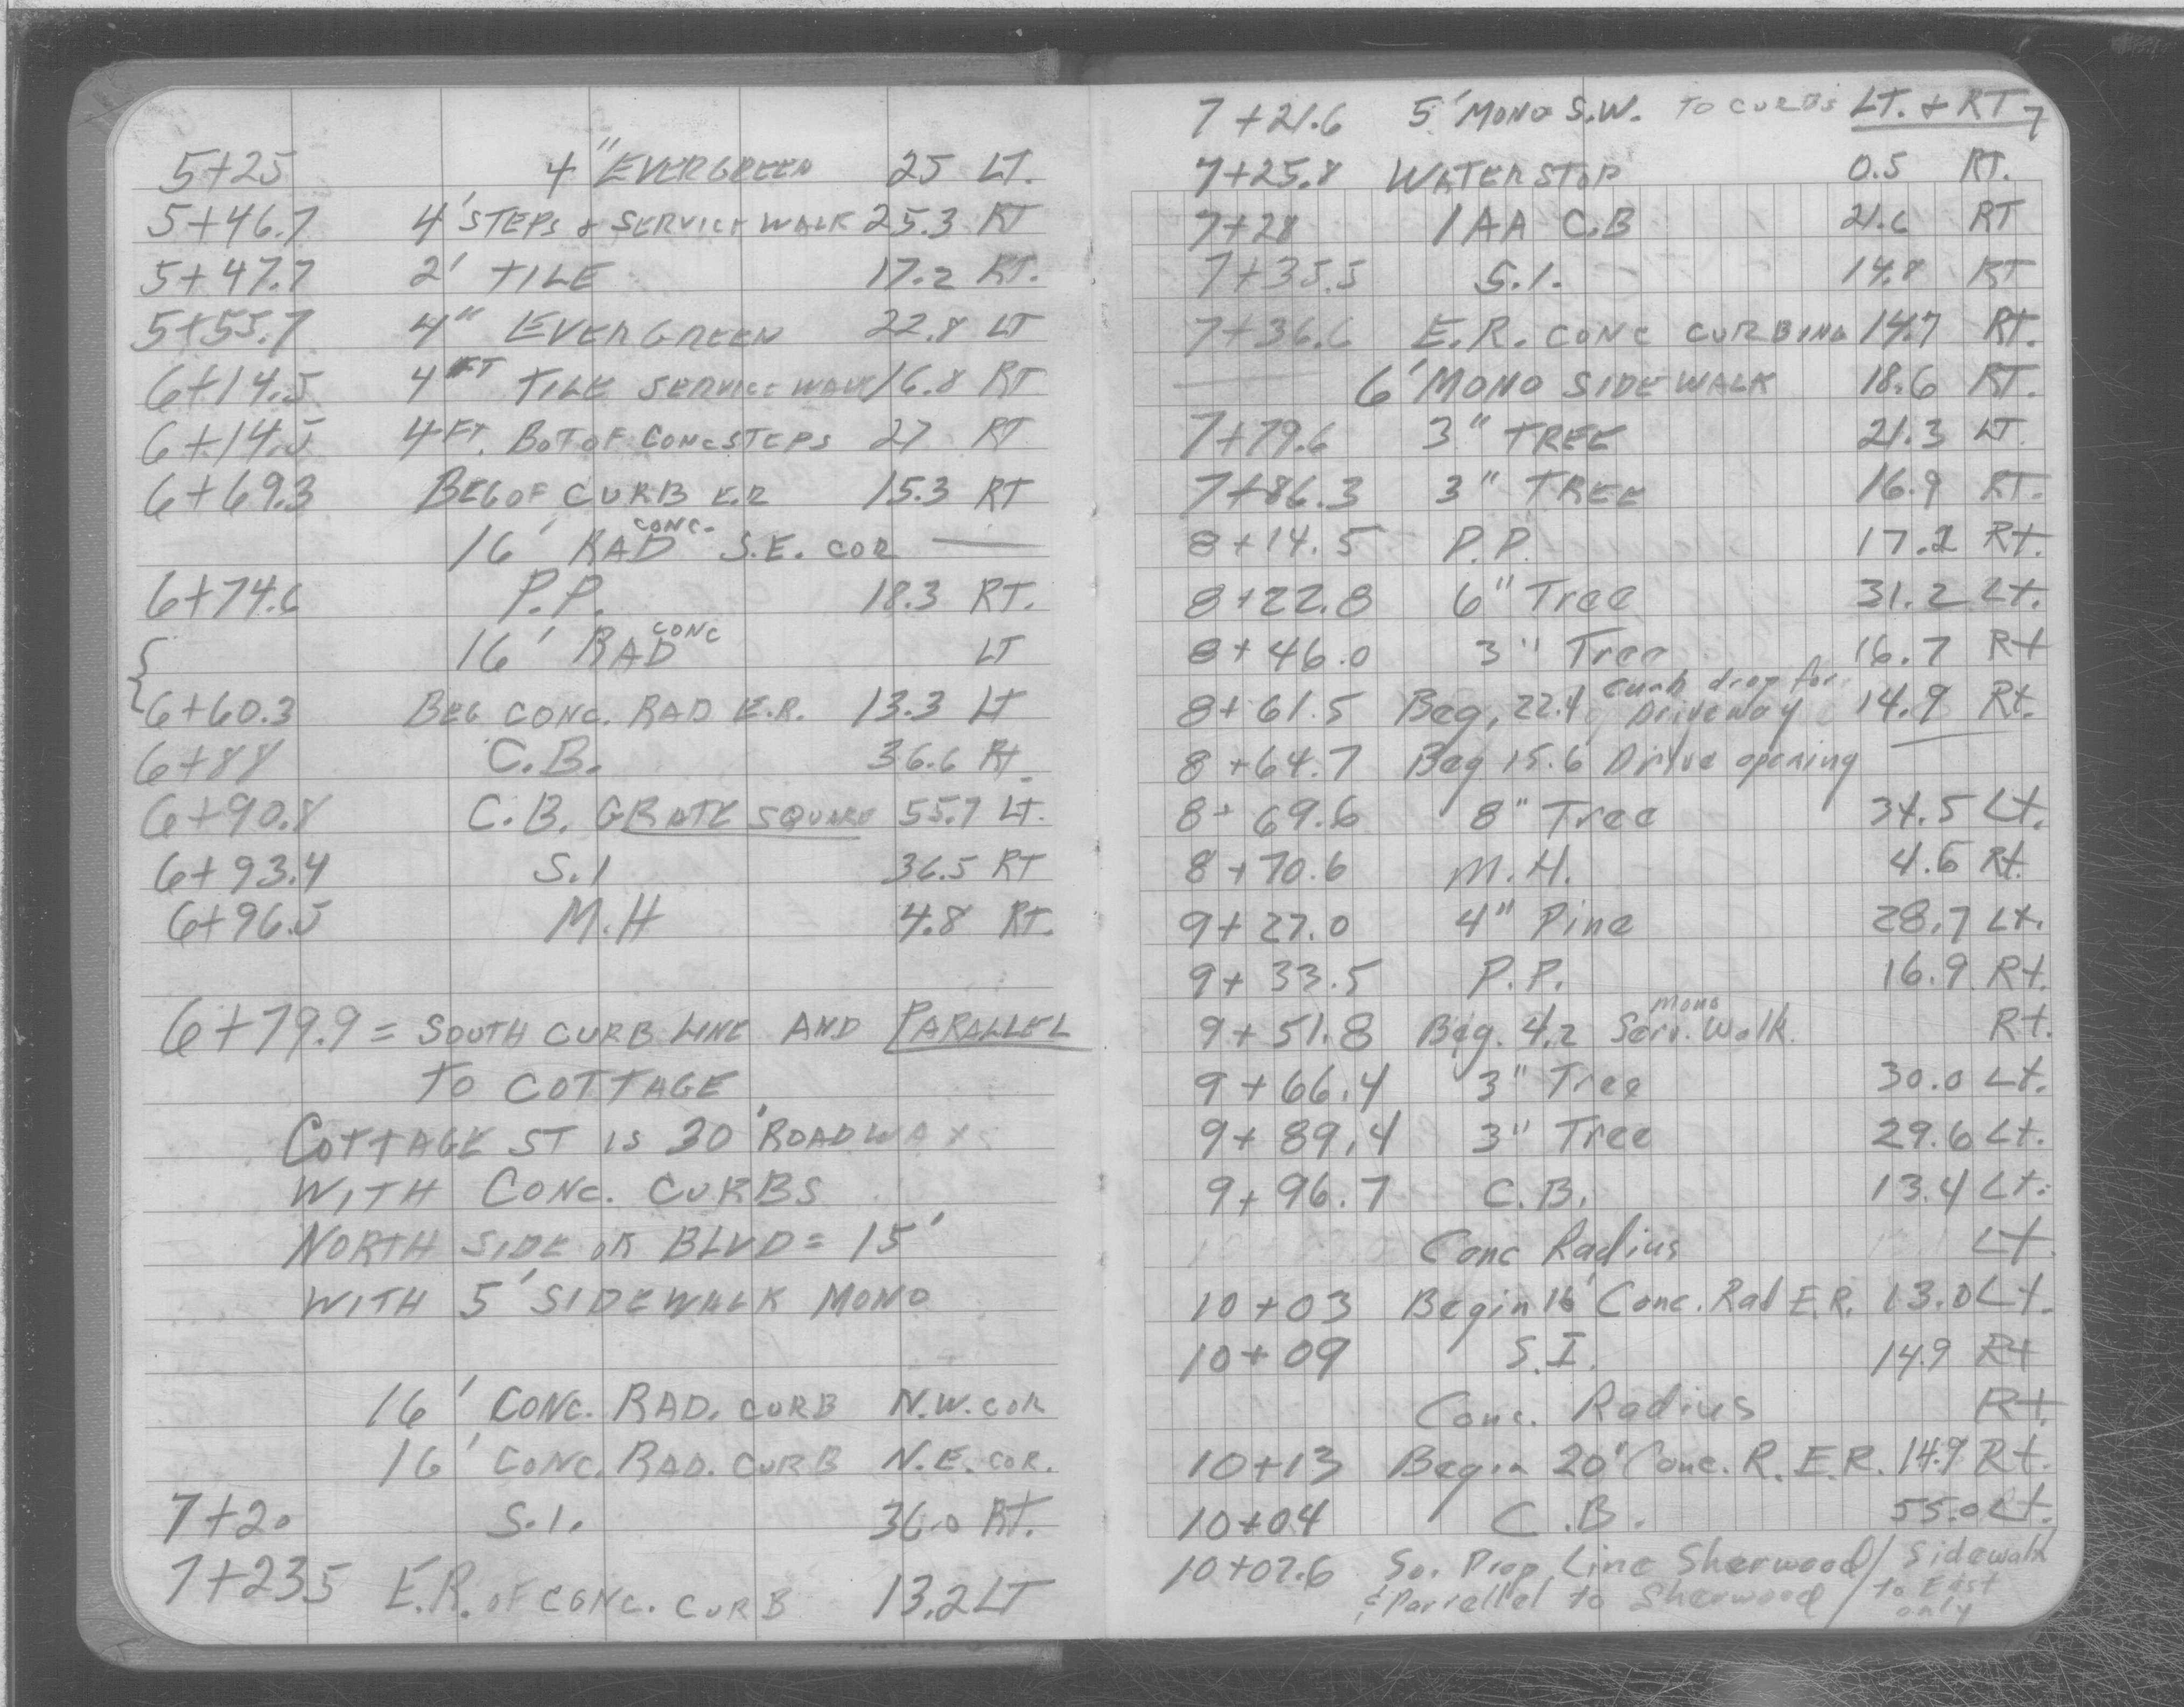 5+25 4" EVERGREEN 25 LT.
5+46.7 4' STEPS & SERVICE WALK 25.3 RT
5+47.7 2' TILE 17.2 RT.
5+55.7 4" EVERGREEN 22.8 LT
6+14.5 4 FT TILE SERVICE WALK 16.8 RT
6+14.5 4 FT. BOT OF CONC STEPS 27 RT
6+69.3 BEG OF CURB E.R 15.3 RT
16' RAD CONC. S.E. COR —
6+74.6 P.P. 18.3 RT.
16' RAD CONC LT
6+60.3 BEG CONC. RAD E.R. 13.3 LT
6+88 C.B. 36.6 Rt.
6+90.8 C.B. GRATE SQUARE 55.7 LT.
6+93.4 S.I 36.5 RT
6+96.5 M.H 4.8 RT.
6+79.9 = SOUTH CURB LINE AND PARALLEL
TO COTTAGE
COTTAGE ST IS 30' ROADWAY
WITH CONC. CURBS
NORTH SIDE OR BLVD = 15'
WITH 5' SIDEWALK MONO
16' CONC. RAD. CURB N.W. COR
16' CONC. RAD. CURB N.E. COR.
7+20 S.I. 36.0 RT.
7+235 E.R. OF CONC. CURB 13.2 LT
7
7+21.6 5' MONO S.W. TO CURBS LT. & RT
7+25.8 WATER STOP 0.5 RT.
7+28 1AA C.B 21.6 RT
7+35.5 S.I. 14.8 RT
7+36.6 E.R. CONC CURBING 14.7 RT.
— 6' MONO SIDEWALK 18.6 RT.
7+79.6 3" TREE 21.3 LT.
7+86.3 3" TREE 16.9 RT.
8+14.5 P.P. 17.2 Rt.
8+22.8 6" Tree 31.2 Lt.
8+46.0 3" Tree 16.7 Rt
8+61.5 Beg. 22.4 Curb drop for Driveway 14.9 Rt.
8+64.7 Beg 15.6 Drive opening —
8+69.6 8" Tree 34.5 Lt.
8+70.6 M.H. 4.6 Rt.
9+27.0 4" Pine 28.7 Lt.
9+33.5 P.P. 16.9 Rt.
9+51.8 Beg. 4.2 mono Serv. Walk. Rt.
9+66.4 3" Tree 30.0 Lt.
9+89.4 3" Tree 29.6 Lt.
9+96.7 C.B. 13.4 Lt.
Conc Radius Lt.
10+03 Begin 16' Conc. Rad E.R. 13.0 Lt.
10+09 S.I. 14.9 Rt
Conc. Radius Rt.
10+13 Begin 20' Conc. R. E.R. 14.9 Rt.
10+04 C.B. 55.0 Lt.
10+07.6 So. Prop. Line Sherwood / Sidewalk
& Parrellel to Sherwood / to East
only